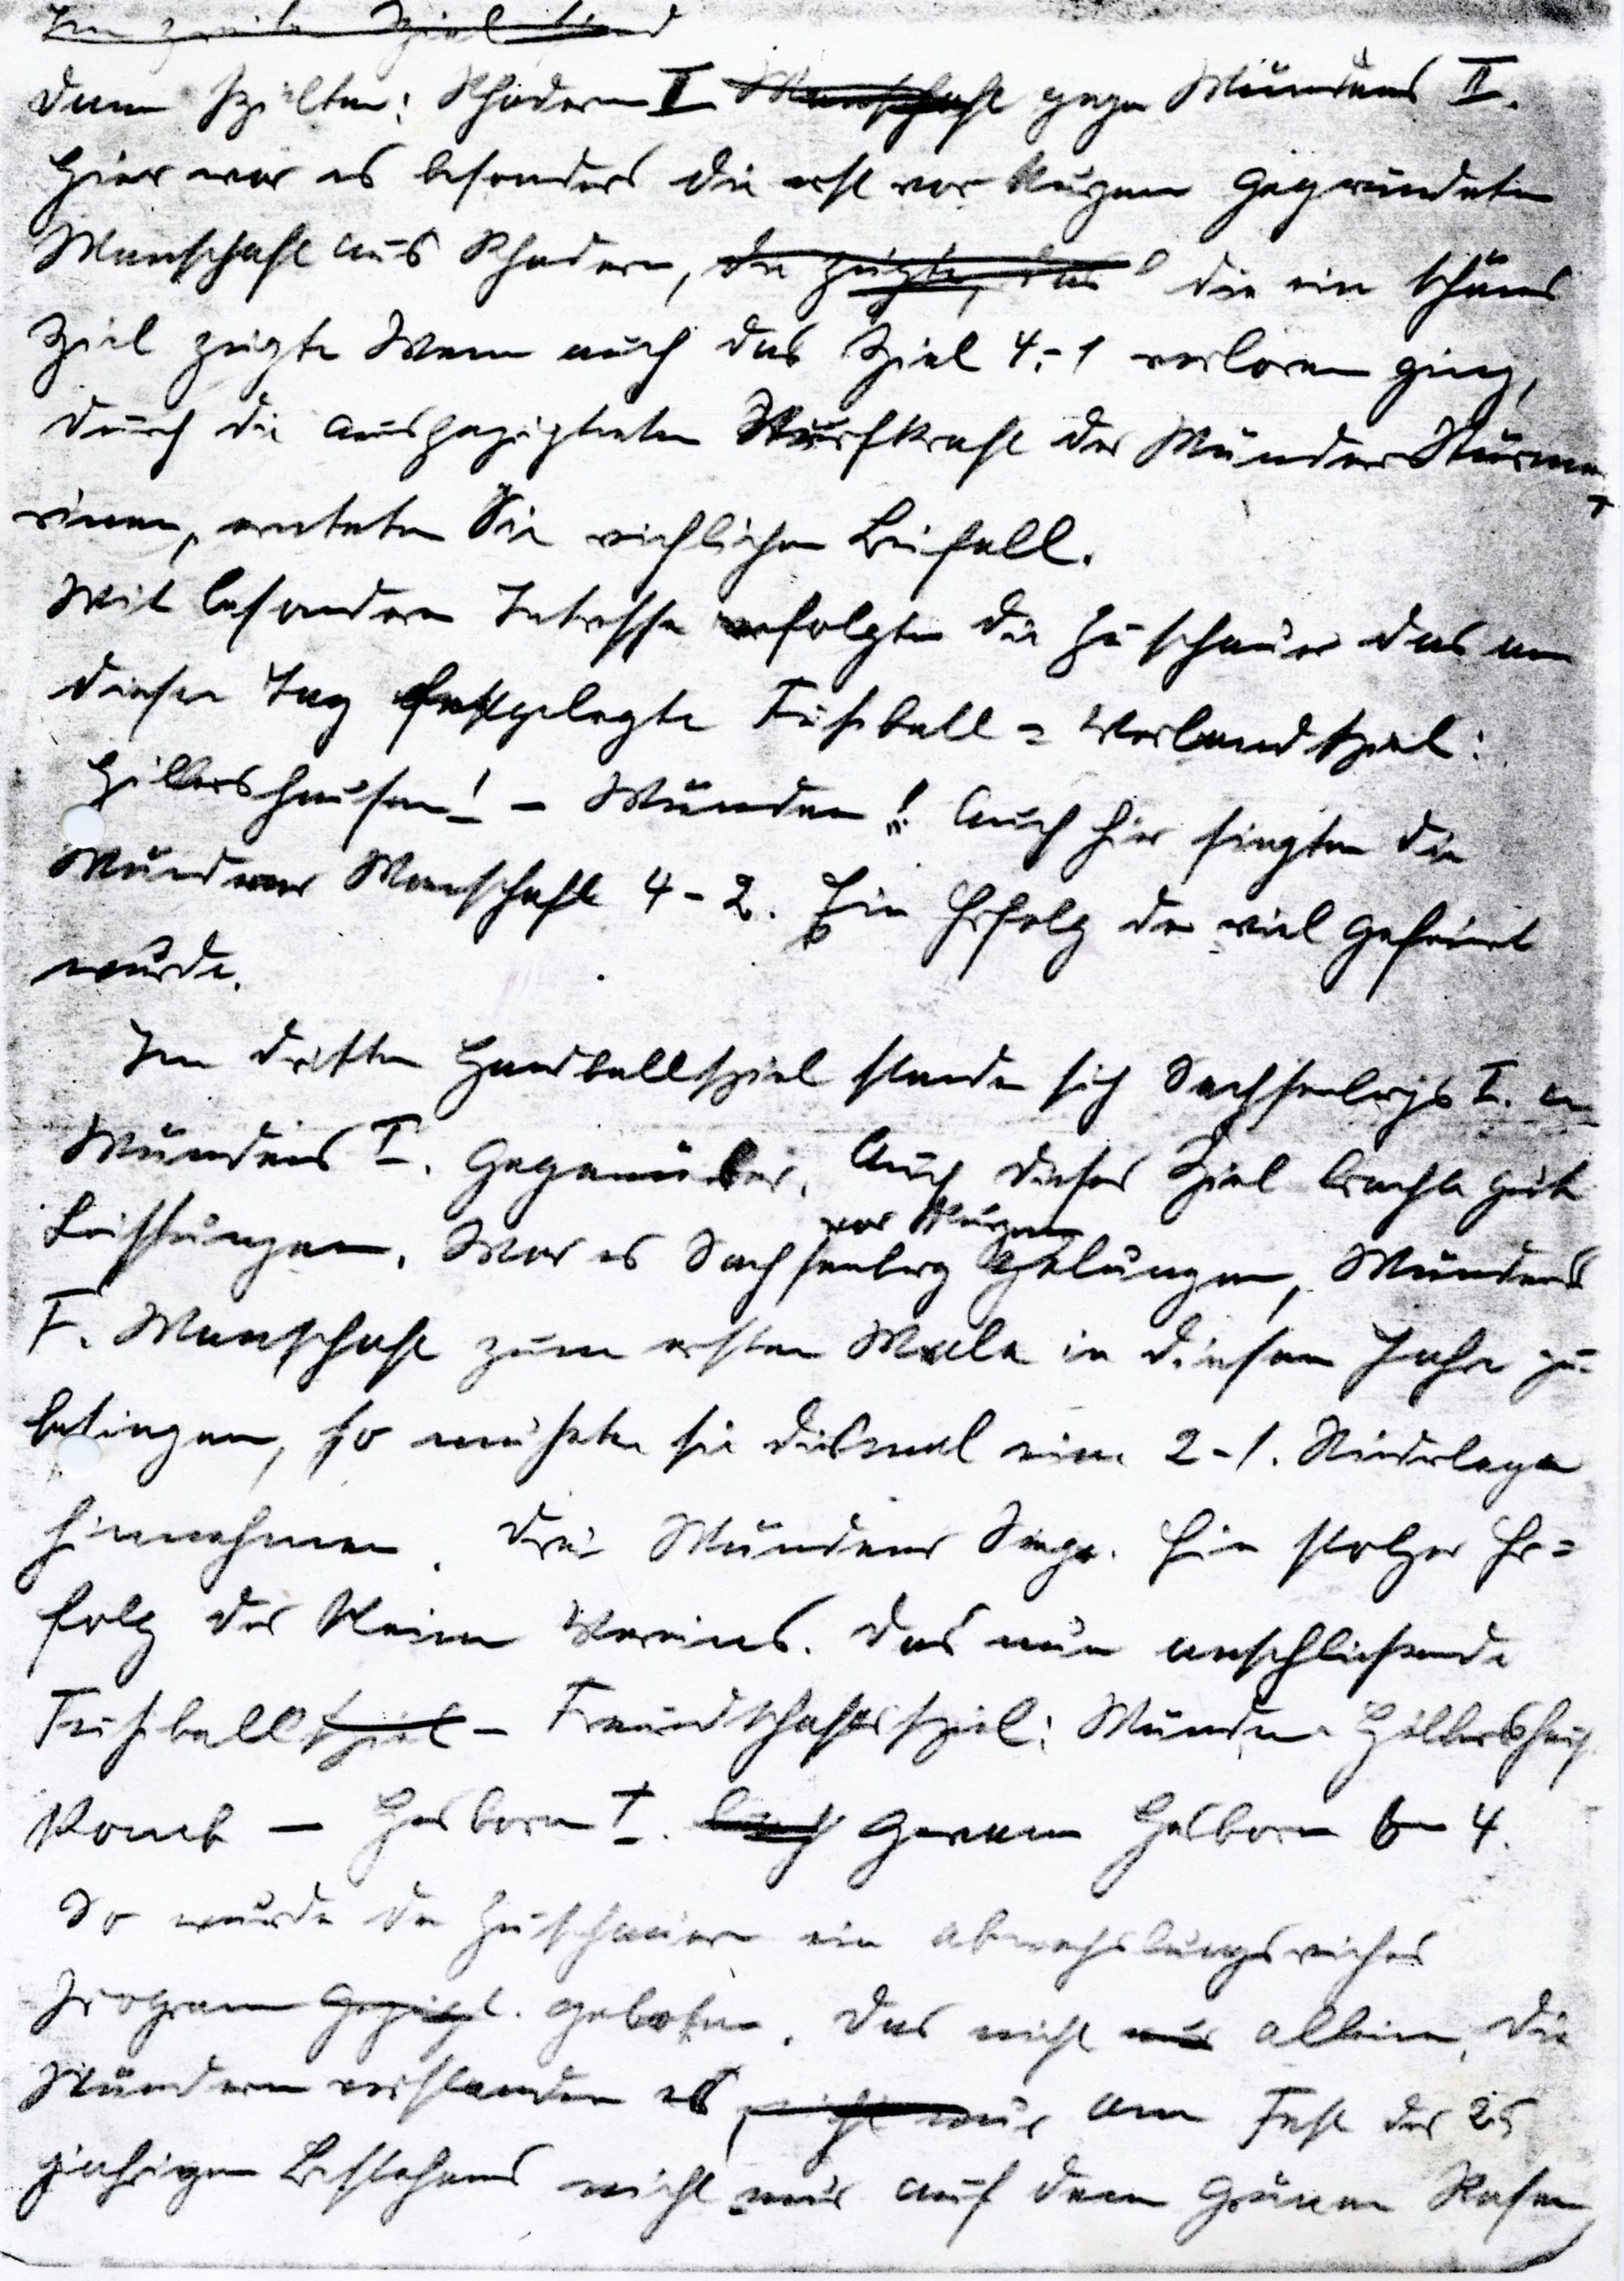 Im zweiten Spiel stand
Dann spielten: Rhadern II Manschaft gegen Mündens II.
Hier war es besonders die erst vor Kurzem gegründete
Manschaft aus Rhadern, die zeigte, das die ein schönes
Spiel zeigte Wenn auch das Spiel 4:-1 verloren ging,
durch die ausgezeigneten Wurfkraft der Münder Stürme
rinen, ernteten Sie reichlichen Beifall.
Mit besonderen Intresse verfolgten die Zuschauer das an
diesen Tag festgelegte Fußball = Verbandspiel:
Hillershausen! - Münden! Auch hier siegten die
Mündener Manschaft 4-2. Ein Erfolg der viel gefeiert
wurde.
Im dritten Handballspiel standen sich Sachsenbergs I. u.
Mündens I. Gegenüber. Auch dieses Spiel brachte gute
vor Kurzem
Leistungen. War es Sachsenberg gelungen, Mündens
I. Manschaft zum ersten Male in diesem Jahr zu=
besiegen, so mußten sie diesmal eine 2-1. Niederlage
hinnehmen. Drei Mündener Siege. Ein stolzer Er=
folg des Kleinen Vereins. Das nun anschließende
Fußballspiel - Freundschaftsspiel: Münden Hillershaus
Komb - Hesborn I. Gewann Hesborn 6-4.
So wurde den Zuschauern ein abwechslungsreiches
Program gezeigt. geboten. Das nicht nur allein, die
Mündener verstanden es nicht nur am Fest des 25
jährigen Bestehens nicht nur auf dem Grünen Rasen